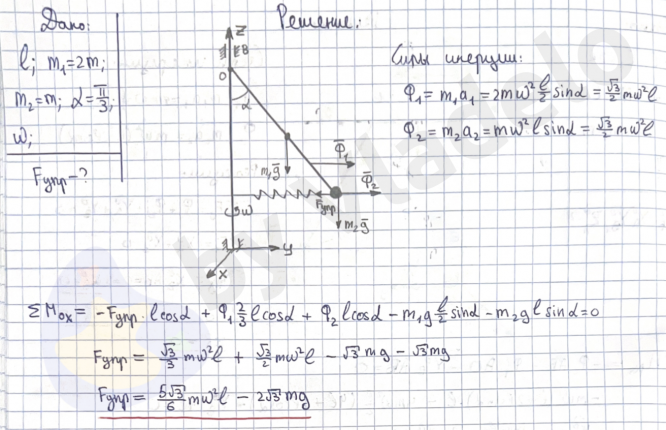 Дано:
l; m₁=2m;
m₂=m; α=π/3;
ω;
Fупр-?
Решение:
Z
B
O
α
m₁g̅
Φ̅₁
Φ̅₂
Fупр
m₂g̅
ω
y
x
Силы инерции:
Φ₁ = m₁a₁ = 2mω² l/2 sinα = √3/2 mω²l
Φ₂ = m₂a₂ = mω²l sinα = √3/2 mω²l
ΣMox = -Fупр·lcosα + Φ₁ 2/3 lcosα + Φ₂ lcosα - m₁g l/2 sinα - m₂g l sinα = 0
Fупр = √3/3 mω²l + √3/2 mω²l - √3 mg - √3 mg
Fупр = 5√3/6 mω²l - 2√3 mg
by vladalo